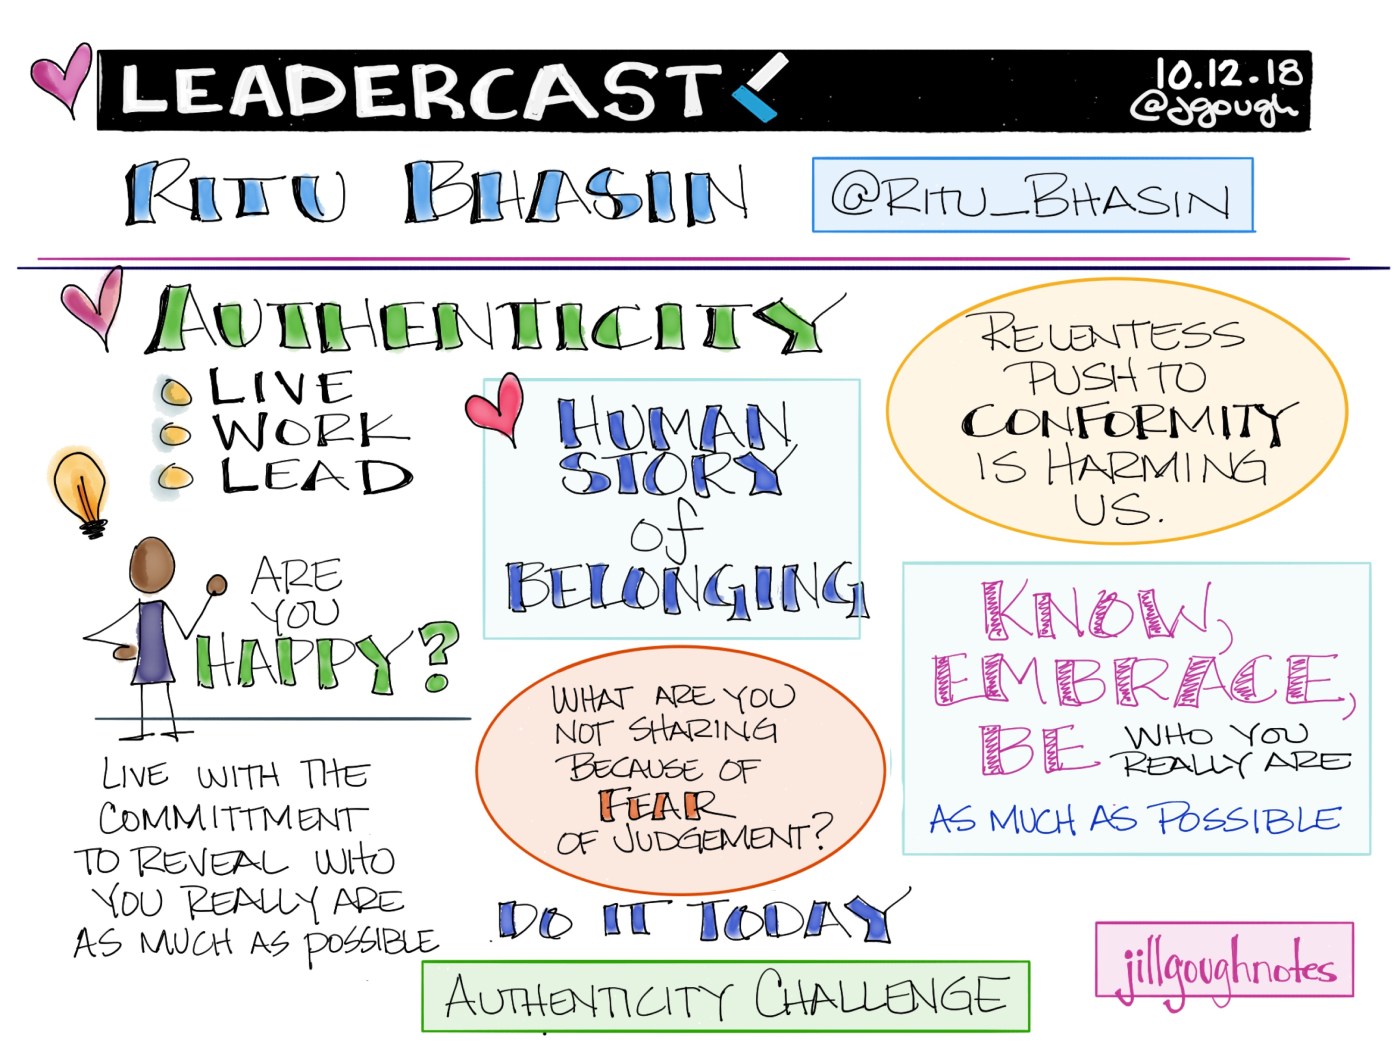 LEADERCAST
10.12.18
@jgough
RITU BHASIN
@RITU_BHASIN
AUTHENTICITY
LIVE
WORK
LEAD
ARE
YOU
HAPPY?
LIVE WITH THE
COMMITTMENT
TO REVEAL WHO
YOU REALLY ARE
AS MUCH AS POSSIBLE
HUMAN
STORY
of
BELONGING
WHAT ARE YOU
NOT SHARING
BECAUSE OF
FEAR
OF JUDGEMENT?
DO IT TODAY
AUTHENTICITY CHALLENGE
RELENTESS
PUSH TO
CONFORMITY
IS HARMING
US.
KNOW,
EMBRACE,
BE WHO YOU
REALLY ARE
AS MUCH AS POSSIBLE
jillgoughnotes